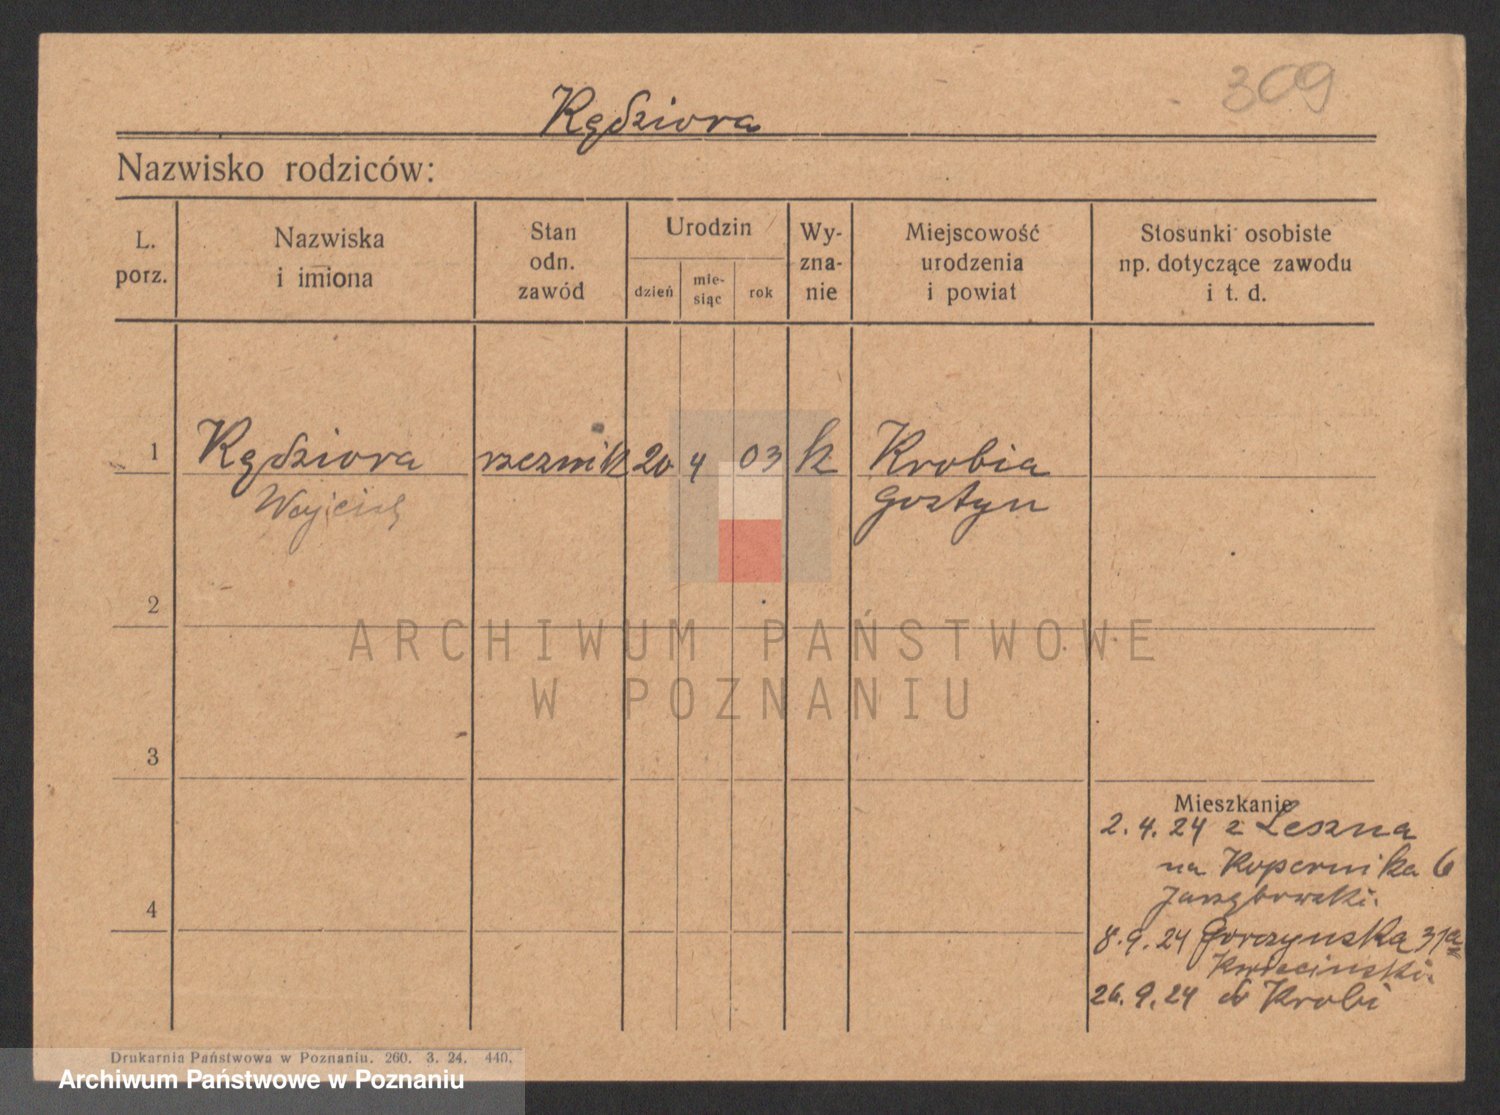 309
Kędziora
Nazwisko rodziców:
L. porz.
Nazwiska i imiona
Stan odn. zawód
Urodzin
dzień
mie-siąc
rok
Wy-zna-nie
Miejscowość urodzenia i powiat
Stosunki osobiste np. dotyczące zawodu i t. d.
1 Kędziora rzeznik 20 4 03 k Krobia
Wojciech Gostyn
2
ARCHIWUM PAŃSTWOWE
W POZNANIU
3
Mieszkanie
2.4.24 z Leszna
na Kopernika 6
Jarzębowski.
4
8.9.24 Gorczynska 31a
Kwiecinski.
26.9.24 do Krobi
Drukarnia Państwowa w Poznaniu. 260. 3. 24. 440.
Archiwum Państwowe w Poznaniu